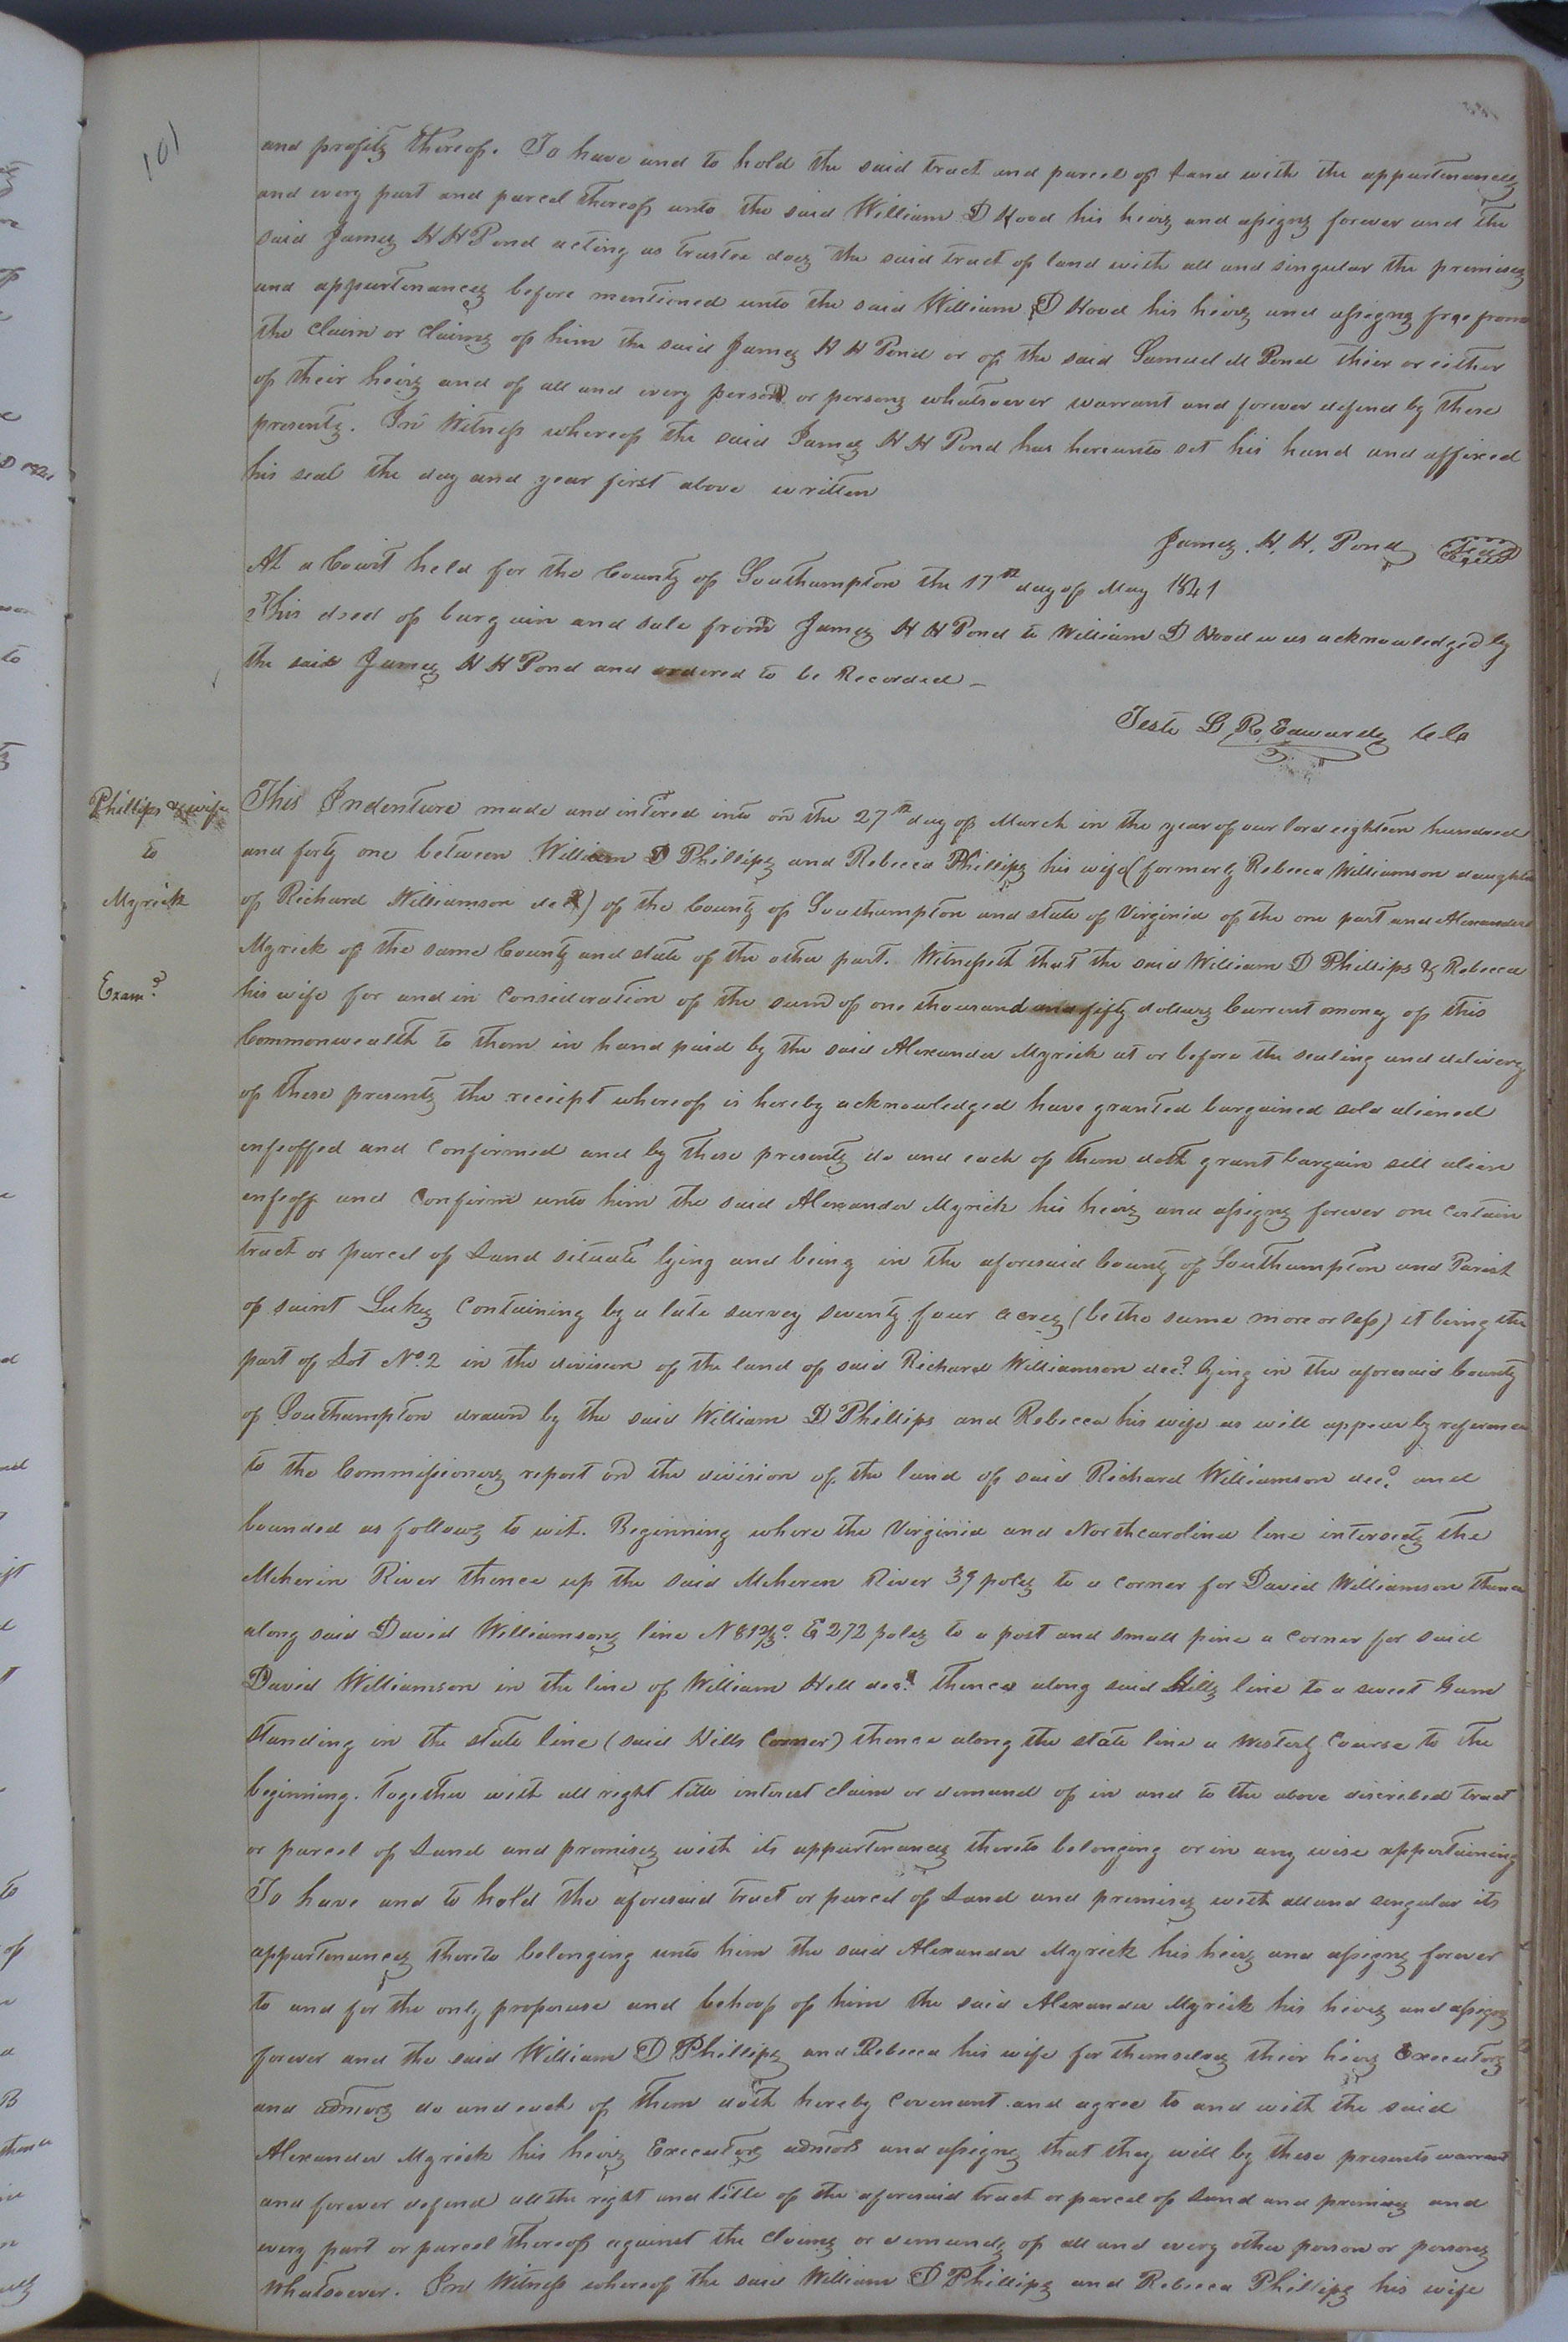 101
and profits thereof. To have and to hold the said tract and parcel of Land with the appurtenances
and every part and parcel thereof unto the said William D Hood his heirs and assigns forever and the
said James H H Pond acting as trustee does the said tract of land with all and singular the premises
and appurtenances before mentioned unto the said William D Hood his heirs and assigns free from
the claim or claims of him the said James H H Pond or of the said Samuel M Pond their or either
of their heirs and of all and every person or persons whatsoever warrant and forever defend by these
presents. In Witness whereof the said James H H Pond has hereunto set his hand and affixed
his seal the day and year first above written
James. H. H. Pond Seal
At a Court held for the County of Southampton the 17th day of May 1841
This deed of bargain and sale from James H H Pond to William D Hood was acknowledged by
the said James H H Pond and ordered to be Recorded_
Teste L R Edwards C.C
Phillips & wife
to
Myrick
Examd
This Indenture made and intered into on the 27th day of March in the year of our lord eighteen hundred
and forty one between William D Phillips and Rebecca Phillips his wife (formerly Rebecca Williamson daughter
of Richard Williamson decd) of the County of Southampton and state of Virginia of the one part and Alexander
Myrick of the same County and state of the other part. Witnesseth that the said William D Phillips & Rebecca
his wife for and in Consideration of the sum of one thousand and fifty dollars Current money of this
Commonwealth to them in hand paid by the said Alexander Myrick at or before the sealing and delivery
of these presents the receipt whereof is hereby acknowledged have granted bargained sold aliened
enfeoffed and Confirmed and by these presents do and each of them doth grant bargain sell alien
enfeoff and Confirm unto him the said Alexander Myrick his heirs and assigns forever one certain
tract or parcel of Land situate lying and being in the aforesaid County of Southampton and Parish
of saint Lukes Containing by a late survey seventy four acres (be the same more or less) it being the
part of Lot No. 2 in the division of the land of said Richard Williamson decd lying in the aforesaid County
of Southampton drawn by the said William D Phillips and Rebecca his wife as will appear by reference
to the Commissioners report on the division of the land of said Richard Williamson decd and
bounded as follows to wit. Beginning where the Virginia and Northcarolina line intersects the
Meherin River thence up the said Meheren River 39 poles to a corner for David Williamson thence
along said David Williamsons line N 81 2/3° E 272 poles to a post and small pine a corner for said
David Williamson in the line of William Hill decd thence along said Hills line to a sweet Gum
standing in the state line (said Hills Corner) thence along the state line a westerly Course to the
beginning. Together with all right title interest claim or demand of in and to the above discribed tract
or parcel of Land and premises with its appurtenances thereto belonging or in any wise appertaining
To have and to hold the aforesaid tract or parcel of Land and premises with all and singular its
appurtenances thereto belonging unto him the said Alexander Myrick his heirs and assigns forever
to and for the only proper use and behoof of him the said Alexander Myrick his heirs and assigns
forever and the said William D Phillips and Rebecca his wife for themselves their heirs Executors
and admors do and each of them doth hereby Covenant and agree to and with the said
Alexander Myrick his heirs Executors admors and assigns that they will by these presents warrant
and forever defend all the right and title of the aforesaid tract or parcel of Land and premises and
every part or parcel thereof against the claims or demands of all and every other person or persons
whatsoever. In Witness whereof the said William D Phillips and Rebecca Phillips his wife